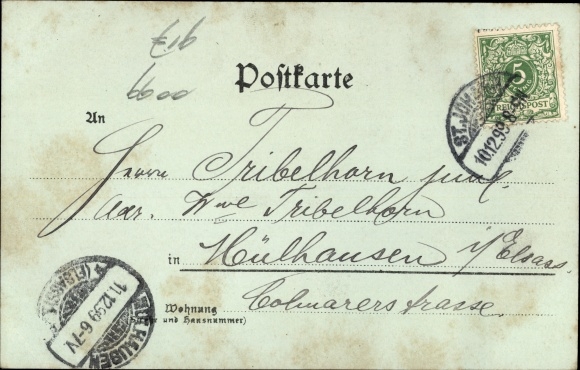 9/7
6600
Postkarte
5
REICHSPOST
ST. JOHANN
10.12.99. 8-9 N
An
Herrn Tribelhorn jun.
Adr. Wwe Tribelhorn
in Mülhausen i/Elsass.
Wohnung Colmarerstrasse
(Strasse und Hausnummer)
MÜLHAUSEN
11.12.99 6-7V
(ELSASS)